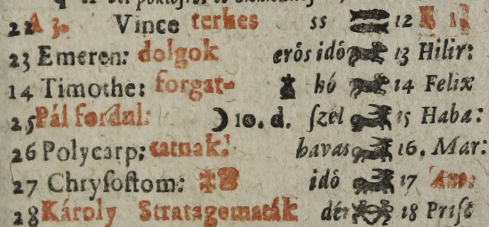 22 A 3. Vince terhes ss 12
23 Emeren: dolgok erős idő 13 Hilir:
14 Timothe: forgat- hó 14 Felix
25 Pál fordul: 10. d. ſzél 15 Haba:
26 Polycarp: tatnak. havas 16. Mar:
27 Chryſoſtom: idő 17
28 Károly Stratagematák dér 18 Priſc